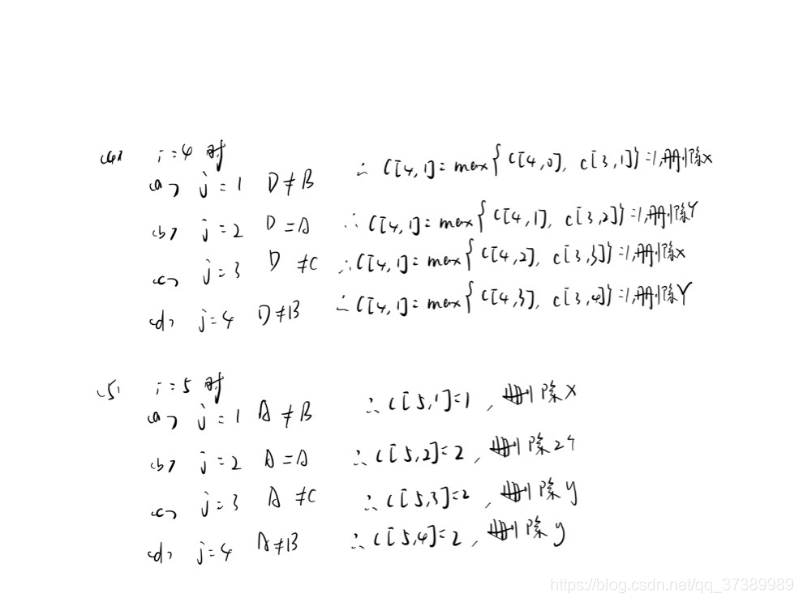 (4) i=4 时
(a) j=1 D≠B ∴ C[4,1]=max{C[4,0], c[3,1]}=1,删除x
(b) j=2 D=A ∴ C[4,1]=max{C[4,1], c[3,2]}=1,删除Y
(c) j=3 D≠C ∴ C[4,1]=max{C[4,2], c[3,3]}=1,删除x
(d) j=4 D≠B ∴ C[4,1]=max{C[4,3], c[3,4]}=1,删除Y
(5) i=5 时
(a) j=1 A≠B ∴ C[5,1]=1, 删除X
(b) j=2 A=A ∴ C[5,2]=2, 删除2个
(c) j=3 A≠C ∴ C[5,3]=2, 删除y
(d) j=4 A≠B ∴ C[5,4]=2, 删除y
https://blog.csdn.net/qq_37389989